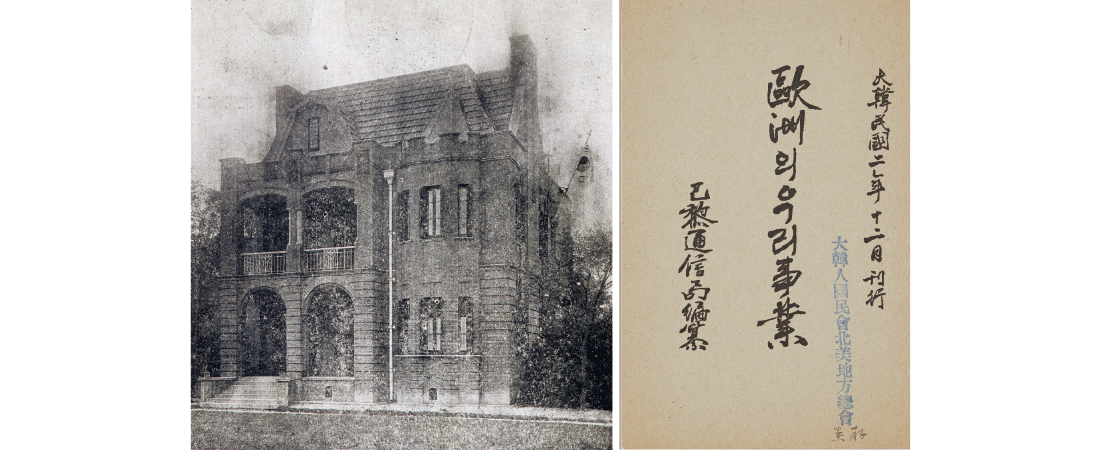 大韓民國二年 十二月 刊行
大韓人國民會北美地方總會
歐洲의우리事業
巴黎通信局編纂